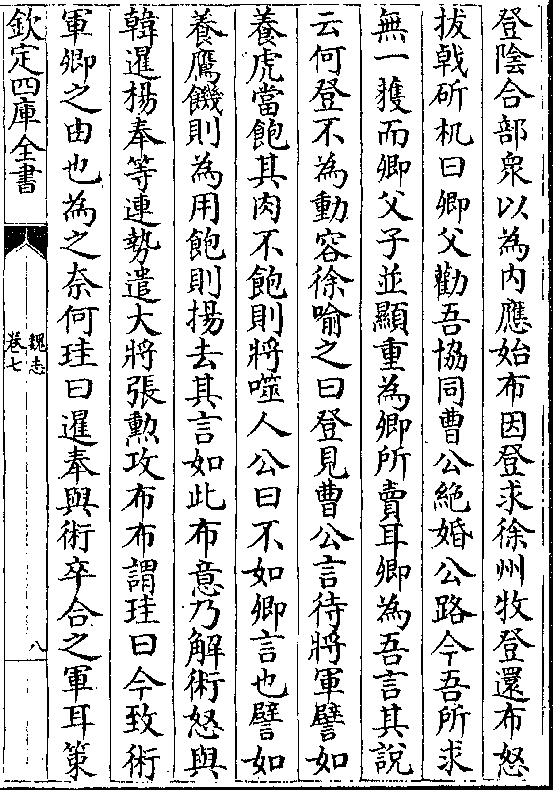 登陰合部衆以為内應始布因登求徐州牧登還布怒
拔戟斫机曰卿父勸吾協同曹公絶婚公路今吾所求
無一獲而卿父子並顯重為卿所賣耳卿為吾言其說
云何登不為動容徐喻之曰登見曹公言待將軍譬如
養虎當飽其肉不飽則將噬人公曰不如卿言也譬如
養鷹饑則為用飽則揚去其言如此布意乃解術怒與
韓暹楊奉等連勢遣大將張勲攻布布謂珪曰今致術
軍卿之由也為之奈何珪曰暹奉與術卒合之軍耳策
欽定四庫全書
魏志
卷七
八